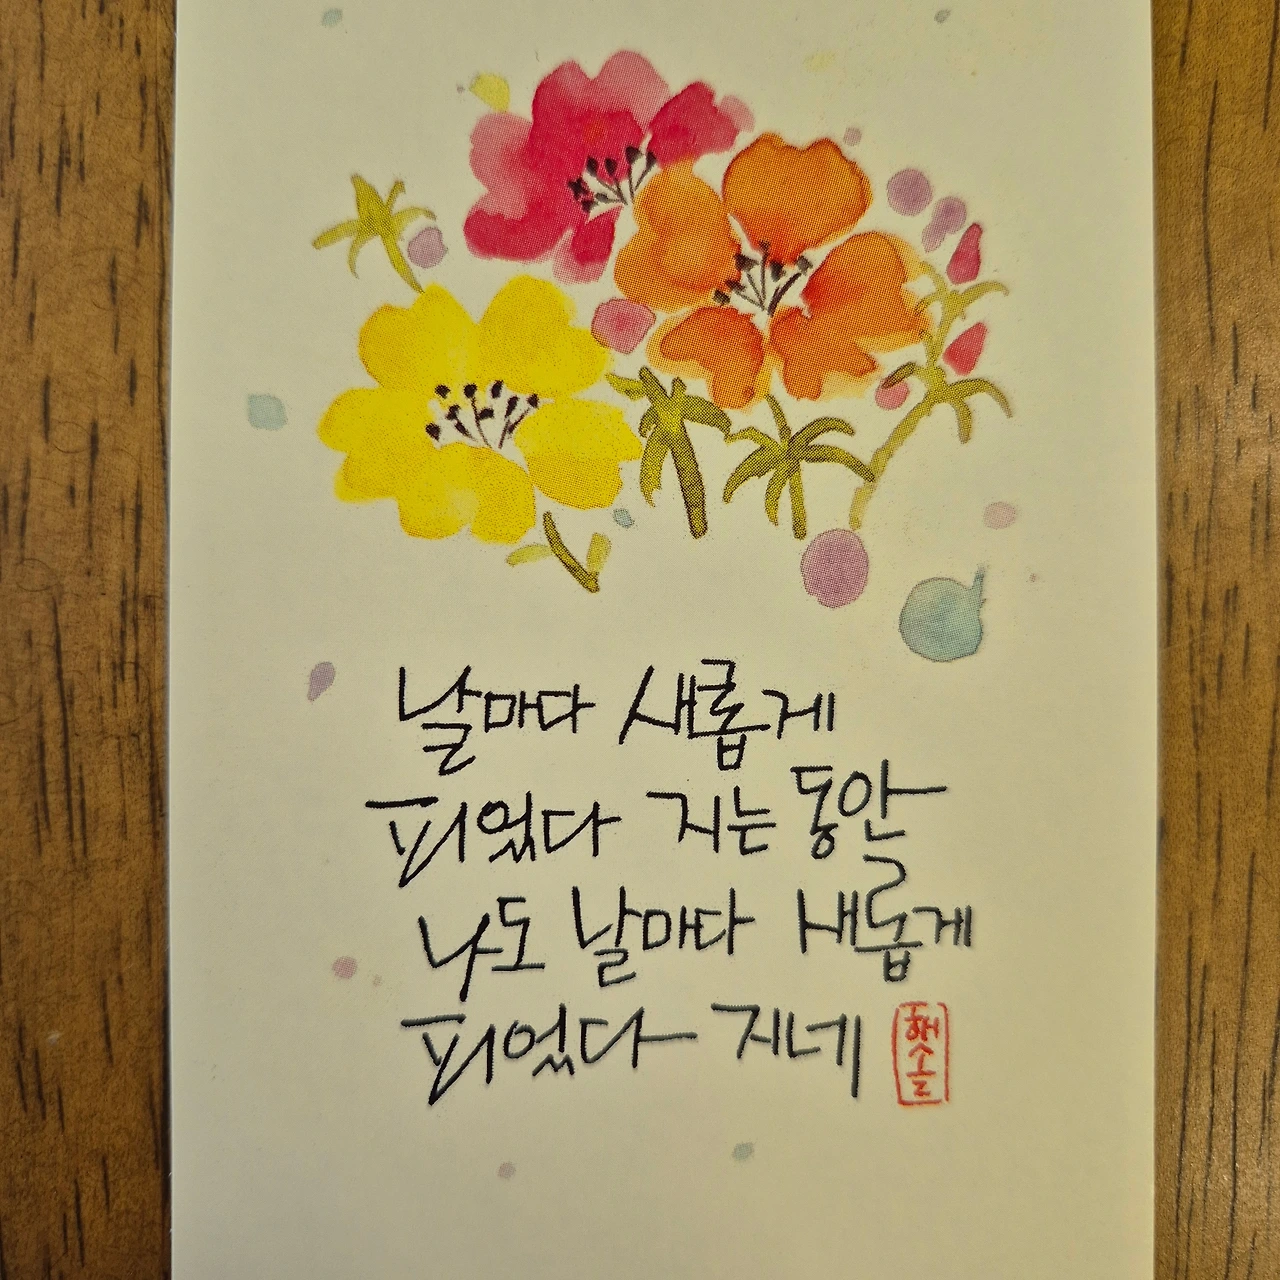 날마다 새롭게
피었다 지는 동안
나도 날마다 새롭게
피었다 지네
해솔